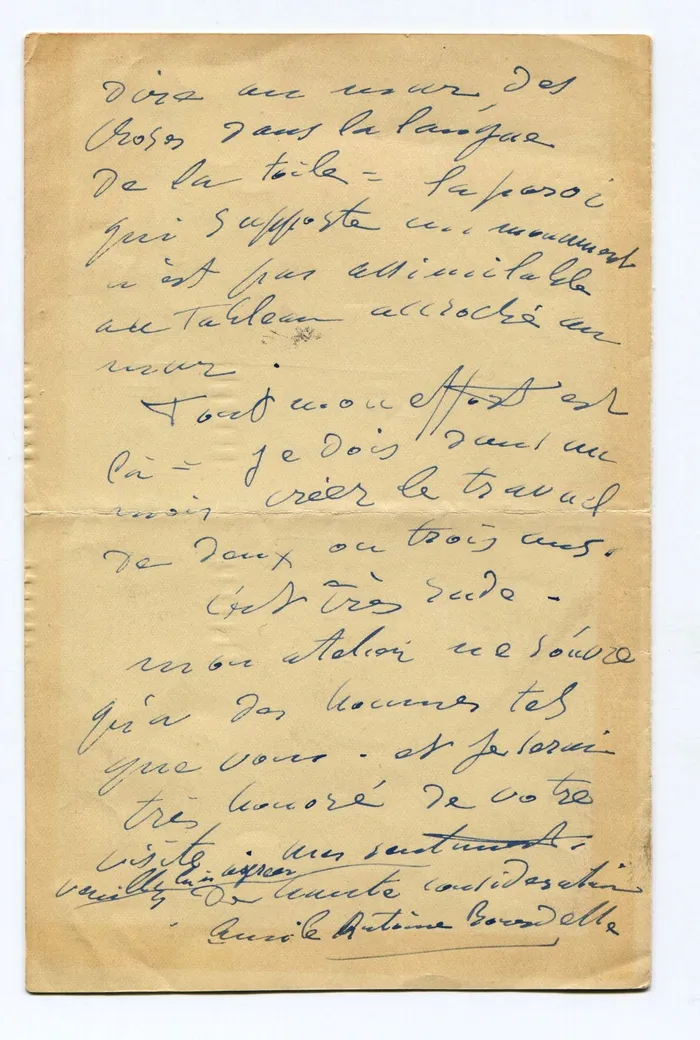 dire au mur des
choses dans la langue
de la toile = la paroi
qui supporte un monument
n'est pas assimilable
au Tableau accroché au
mur.
Tout mon effort est
là = je dois dans un
mois créer le travail
de deux ou trois ans.
c'est très rude -
mon atelier ne s'ouvre
qu'à des hommes tels
que vous. et je serai
très honoré de votre
visite
mes sentiments.
veuillez agréer
de haute considération
Emile Antoine Bourdelle